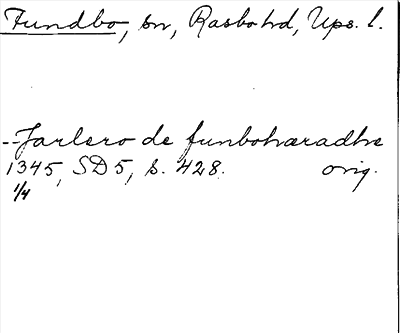 Fundbo, sn, Rasbo hd, Ups. l.
--Jarlero de funbohæradhe
1345, SD 5, s. 428. orig.
1/4